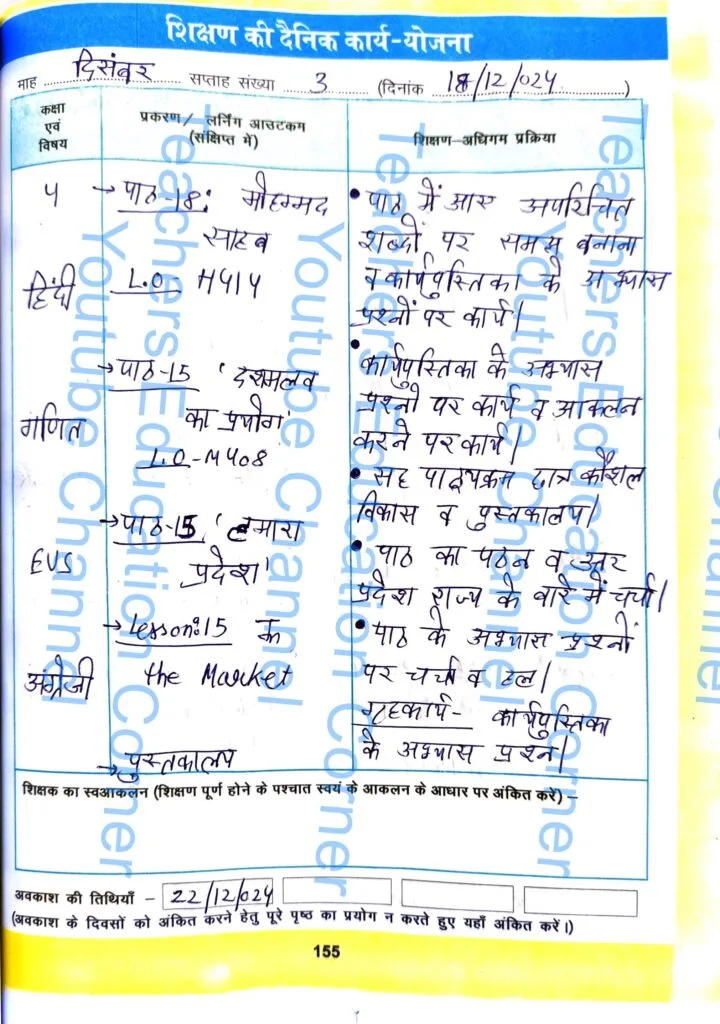 शिक्षण की दैनिक कार्य-योजना
माह दिसंबर सप्ताह संख्या 3 (दिनांक 18/12/024)
कक्षा एवं विषय
प्रकरण/ लर्निंग आउटकम (संक्षिप्त में)
शिक्षण-अधिगम प्रक्रिया
4 → पाठ-18: मोहम्मद
साहब
हिंदी L.O- H414
• पाठ में आए अपरिचित
शब्दों पर समझ बनाना
व कार्यपुस्तिका के अभ्यास
प्रश्नों पर कार्य।
→ पाठ-15 'दशमलव
गणित का प्रयोग'
L.O-M408
• कार्यपुस्तिका के अभ्यास
प्रश्नों पर कार्य व आकलन
करने पर कार्य।
• सह पाठ्यक्रम छात्र कौशल
विकास व पुस्तकालय।
→ पाठ-15 'हमारा
EVS प्रदेश'
• पाठ का पठन व उत्तर
प्रदेश राज्य के बारे में चर्चा।
→ Lesson:15
अंग्रेजी the Market
• पाठ के अभ्यास प्रश्नों
पर चर्चा व हल।
गृहकार्य- कार्यपुस्तिका
के अभ्यास प्रश्न।
→ पुस्तकालय
शिक्षक का स्वआकलन (शिक्षण पूर्ण होने के पश्चात स्वयं के आकलन के आधार पर अंकित करें) –
अवकाश की तिथियाँ – 22/12/024
(अवकाश के दिवसों को अंकित करने हेतु पूरे पृष्ठ का प्रयोग न करते हुए यहाँ अंकित करें।)
155
Teachers Education Corner
Youtube Channel
Teachers Education Corner
Youtube Channel
Teachers Education Corner
Youtube Channel